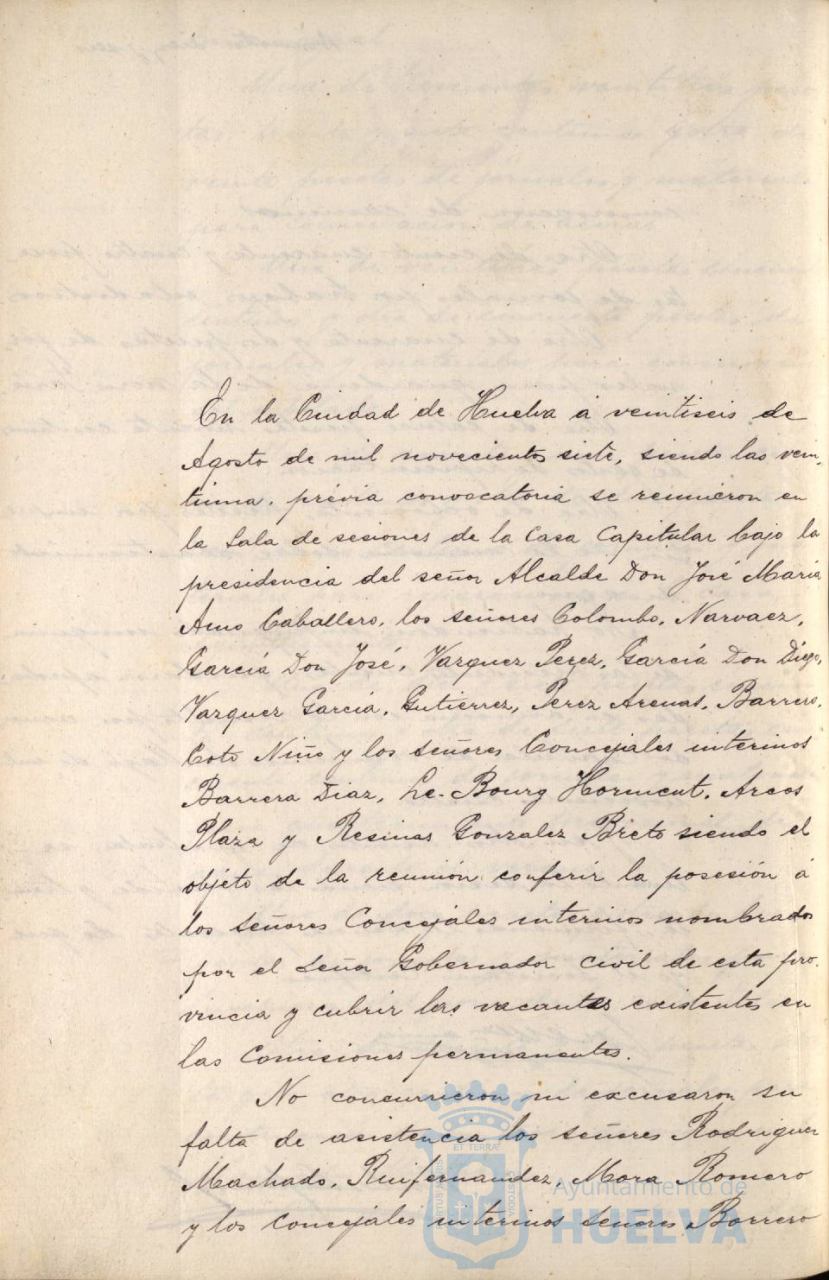 En la Ciudad de Huelva á veintiseis de
Agosto de mil novecientos siete, siendo las vein-
tiuna, prévia convocatoria se reunieron en
la Sala de sesiones de la Casa Capitular bajo la
presidencia del señor Alcalde Don José Maria
Amo Caballero, los señores Colombo, Narvaez,
García Don José, Vazquez Perez, García Don Diego,
Vazquez García, Gutierrez, Perez Arenas, Barrero,
Coto Niño y los señores Concejales interinos
Barrera Diaz, Le-Bourg Horment, Arcos
Plaza y Resinas Gonzalez Brieto siendo el
objeto de la reunión conferir la posesión á
los señores Concejales interinos nombrados
por el Señor Gobernador civil de esta pro-
vincia y cubrir las vacantes existentes en
las Comisiones permanentes.
No concurrieron ni excusaron su
falta de asistencia los señores Rodriguez
Machado, Ruifernandez, Mora Romero
y los concejales interinos señores Borrero
Ayuntamiento de
HUELVA